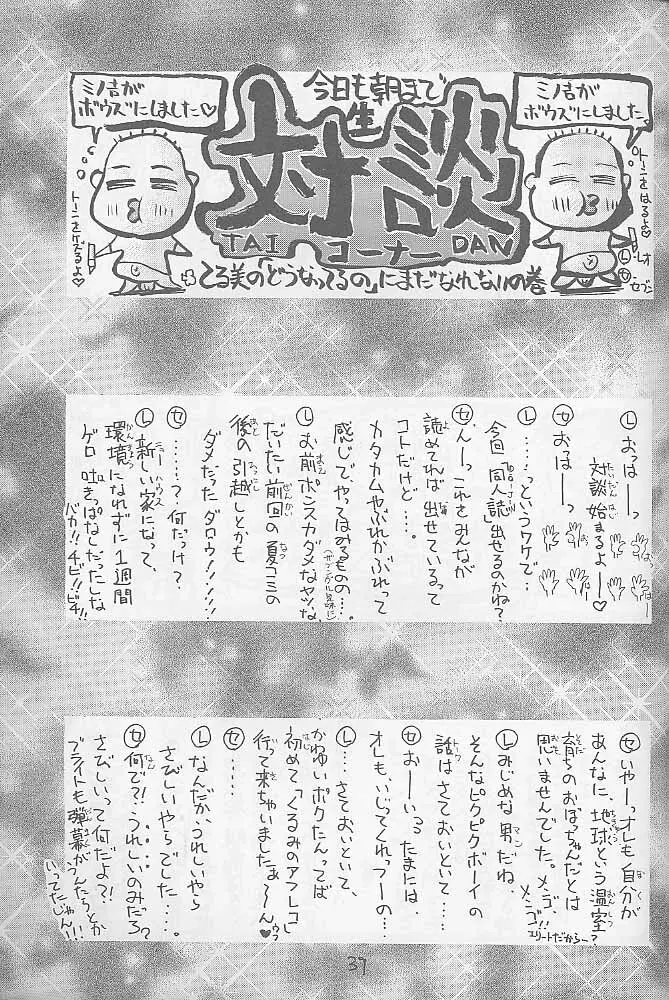 今日も朝まで
生
対談
TAI コーナー DAN
てる美の「どうなってるの」にまだなれないの巻
ミノ吉が
ボウズにしました
トーンをはるよ
Ⓛレオ
Ⓢセブン
ミノ吉が
ボウズにしました♡
トーンをケズるよ♡
Ⓛおっはーっ
対談始まるよー♡
たいだんはじ
Ⓢおっはーっ
おはっ
Ⓛ……っというワケで…
今回「同人誌」出せるのかね?
Ⓢんーっこれをみんなが
読めてれば出せているって
コトだけど…。
カタカムやぶれかぶれって
感じで、やってはみるもの…。
Ⓛお前ポンスカダメなヤツな、
だいたい前回の夏コミの
後の引越しとかも
ダメだったダロウ!!!!
Ⓢ……?何だっけ?
Ⓛ新しい家になって、
ニューハウス
環境になれずに1週間
かんきょう
ゲロ吐きっぱなしだったしな
バカ!!チビ!!ビチ!!
Ⓢいやーっオレも自分が
ぼく
あんなに、地球という温室
おんしつ
育ちのおぼっちゃんだとは
そだ
思いませんでした。メンゴ、
メンゴ!!
エリートだからー?
Ⓛみじめな男だね、
マン
そんなピクピクボーイの
話はさておいといて…
トーク
Ⓢおーいっ たまには、
オレもいじってくれっつーの…
Ⓛ…さておいといて、
かわゆいボクたんってば
初めて「くるみのアフレコ」
はじ
行って来ちゃいましたぁ〜ん♡
ウフ
Ⓢ……
Ⓛなんだか、うれしいやら
さびしいやらでした…。
Ⓢ何で?!うれしいのみだろ?
さびしいって何だよ?!
ブライトも弾幕がうんたらとか
だんまく
いってたじゃん!!
37